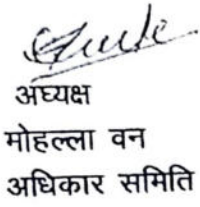 अघ्यक्ष
मोहल्ला वन
अधिकार समिति